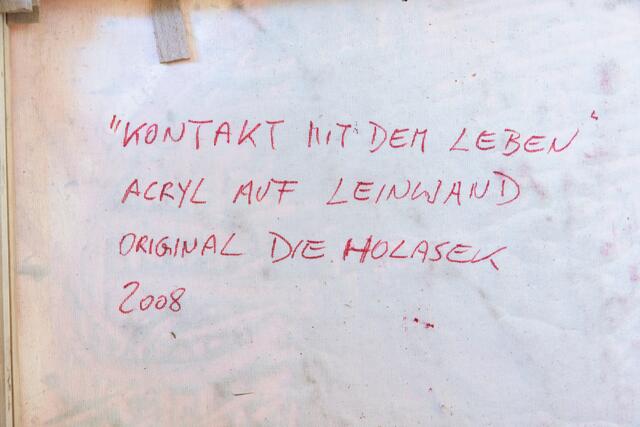 "KONTAKT MIT DEM LEBEN"
ACRYL AUF LEINWAND
ORIGINAL DIE HOLASEK
2008